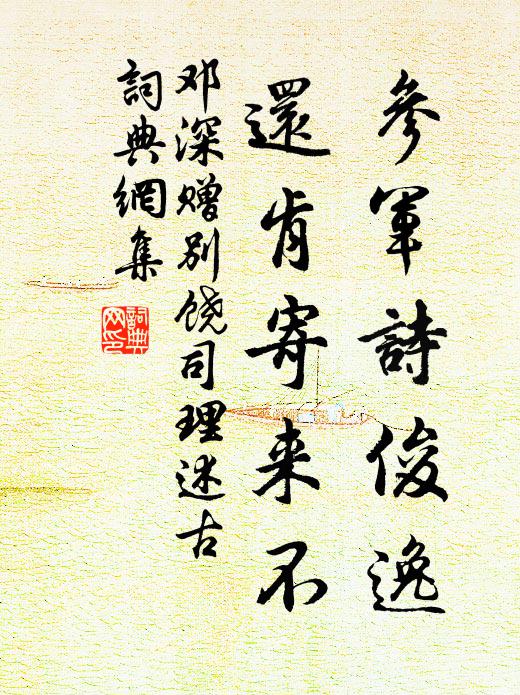 參軍詩俊逸
還肯寄来不
邓深赠别饶司理述古
詞典網集
詞典網印